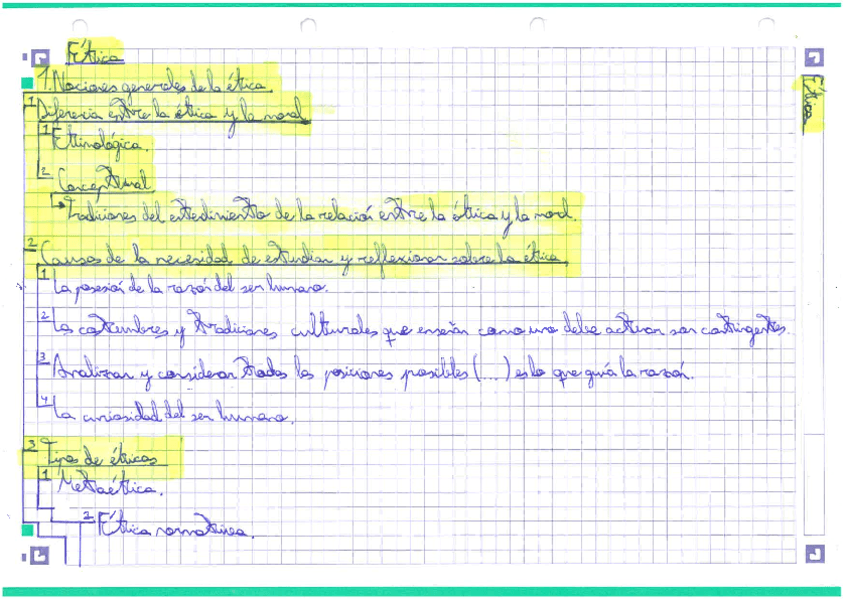 Ética
1. Nociones generales de la ética
1 Diferencia entre la ética y la moral
1 Etimológica.
2 Conceptual
↳ Tradiciones del entendimiento de la relación entre la ética y la moral.
2 Causas de la necesidad de estudiar y reflexionar sobre la ética
1 La posesión de la razón del ser humano.
2 Las costumbres y tradiciones culturales que enseñan como uno debe actuar son contingentes.
3 Analizar y considerar todas las posiciones posibles (...) es lo que guía la razón.
4 La curiosidad del ser humano.
3 Tipos de éticas
1 Metaética.
2 Ética normativa.
Ética